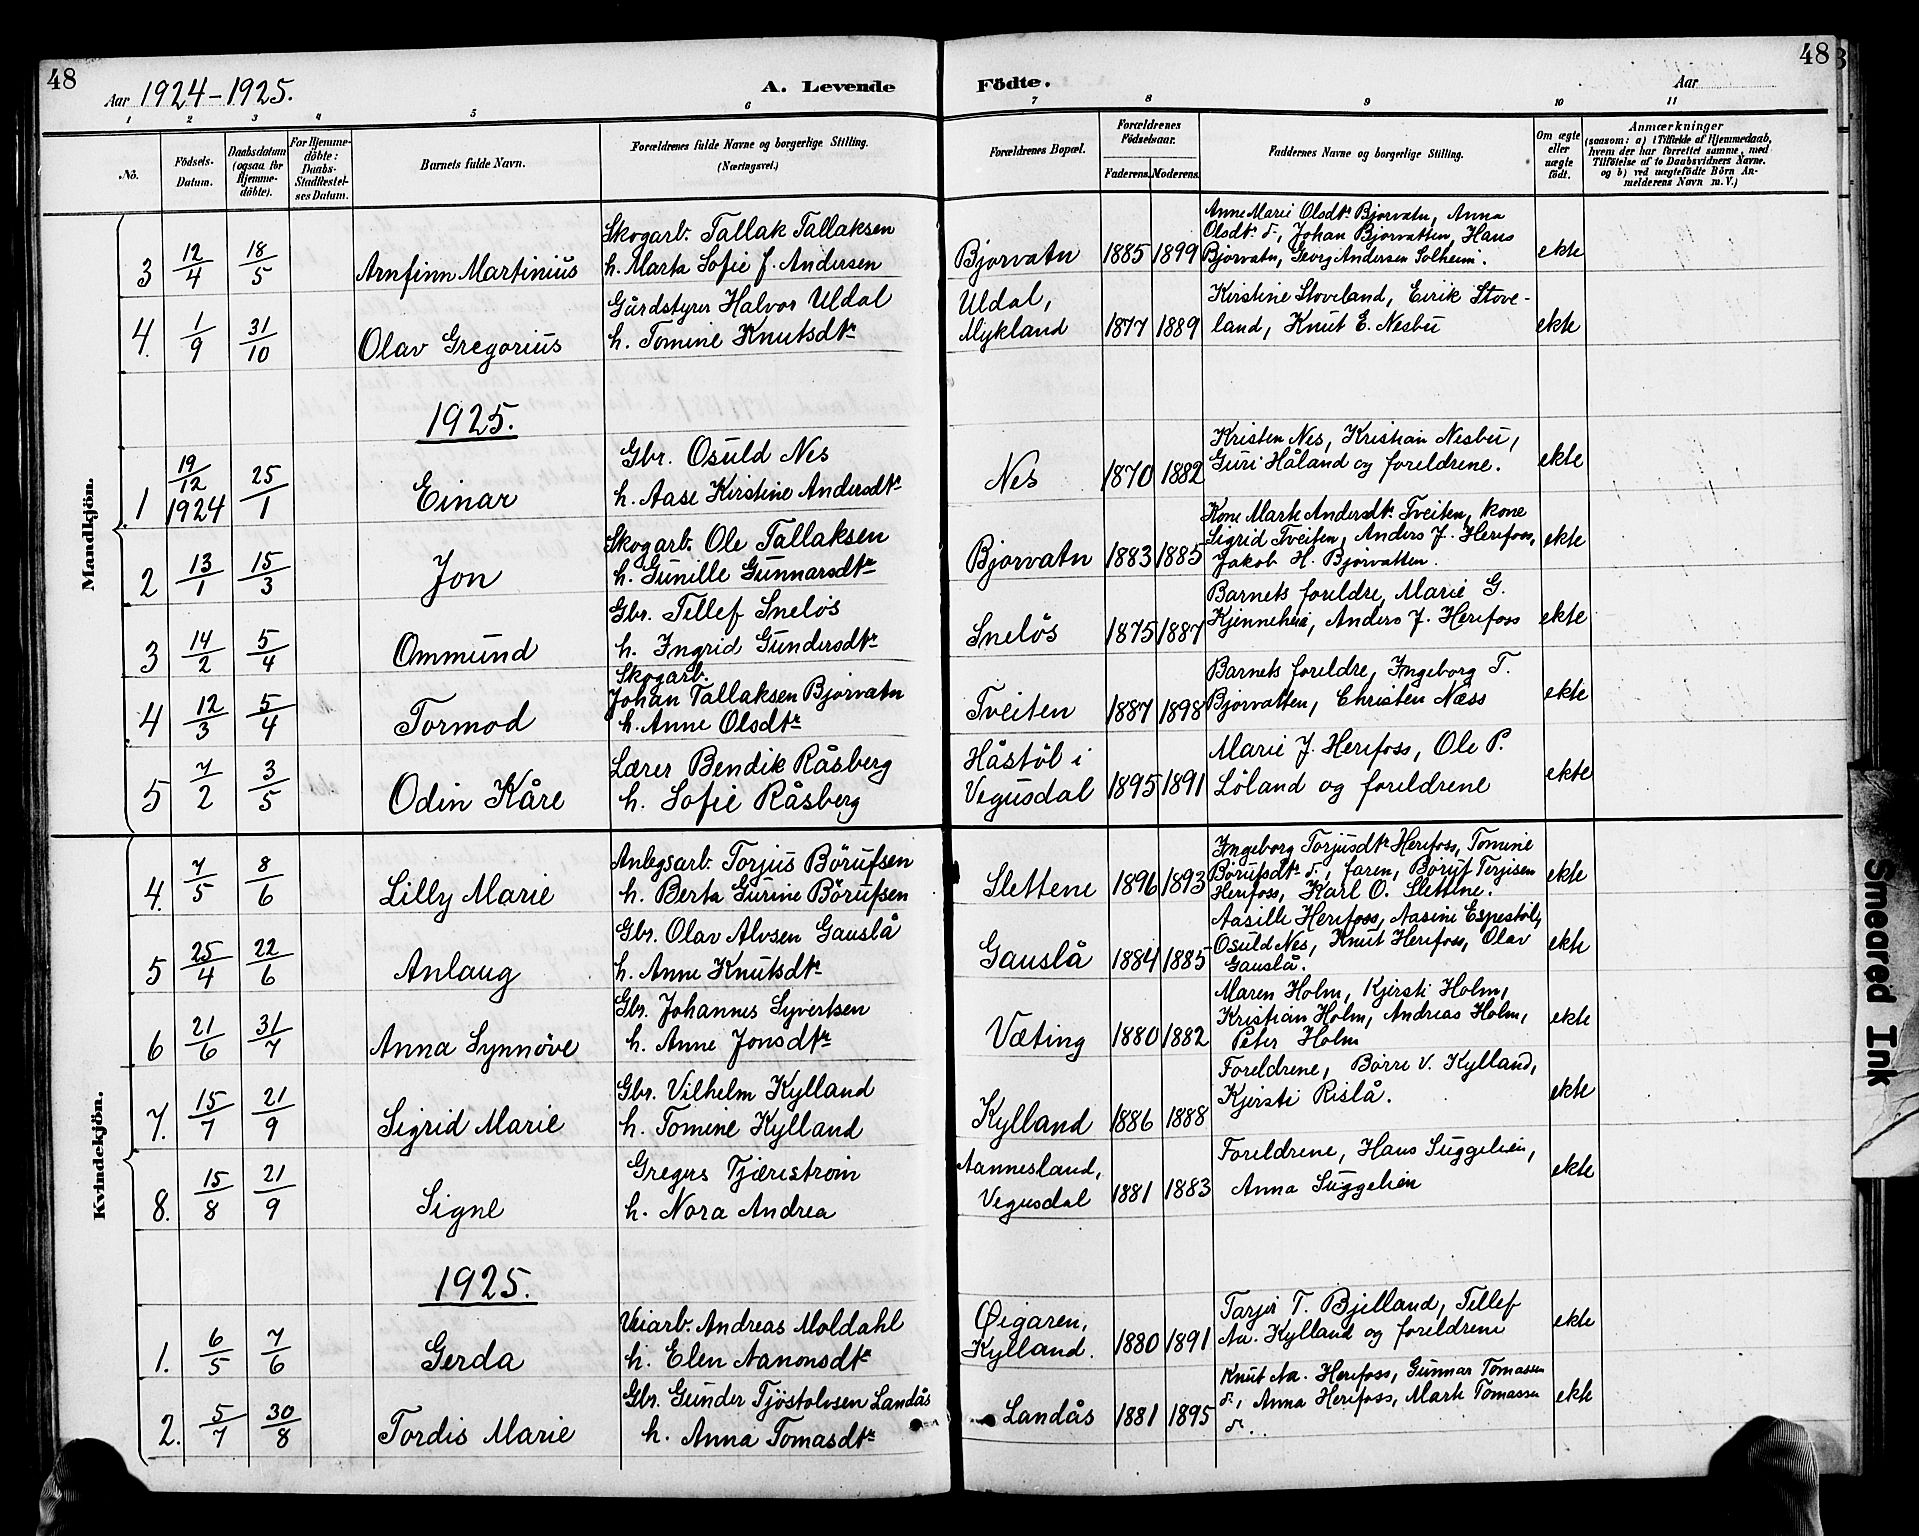 48
48
Aar 1924-1925.
A. Levende
Födte.
Aar
1 2 3 4 5 6 7 8 9 10 11
No.
Födsels-
Datum.
Daabsdatum
(ogsaa for
Hjemme-
döbte).
For Hjemme-
döbte:
Daabs-
Stadfæstel-
ses Datum.
Barnets fulde Navn.
Forældrenes fulde Navne og borgerlige Stilling.
(Næringsvei.)
Forældrenes Bopæl.
Forældrenes
Födselsaar.
Faderens. Moderens.
Faddernes Navne og borgerlige Stilling.
Om ægte
eller
uægte
födt.
Anmærkninger
(saasom: a) i Tilfælde af Hjemmedaab,
hvem der har forrettet samme, med
Tilföielse af to Daabsvidners Navne.
og b) ved uægtefödte Börn An-
melderens Navn m. V.)
Mandkjön.
3 12/4 18/5 Arnfinn Martinius
Skogarb. Tallak Tallaksen
h. Marta Sofie f. Andersen
Bjorvatn 1885 1899
Anne Marie Olsdtr Bjorvatn, Anna
Olsdtr d., Johan Bjorvatten, Hans
Bjorvatn, Georg Andersen Solheim.
ekte
4. 1/9 31/10 Olav Gregorius
Gårdstyrer Halvor Uldal
h. Tomine Knutsdtr
Uldal,
Mykland 1877 1889
Kirstine Stoveland, Eirik Stove-
land, Knut E. Nesbu
ekte
1925.
1 19/12 1924 25/1 Einar
Gbr. Osuld Nes
h. Aase Kirstine Andersdtr
Nes 1870 1882
Kristen Nes, Kristian Nesbu,
Guri Håland og foreldrene.
ekte
2 13/1 15/3 Jon
Skogarb. Ole Tallaksen
h. Gunille Gunnarsdtr
Bjorvatn 1883 1885
Kone Marte Andersdtr Tveiten, kone
Sigrid Tveiten, Anders J. Herefoss,
Jakob H. Bjorvatten.
ekte
3 14/2 5/4 Ommund
Gbr. Tellef Sneløs
h. Ingrid Gundersdtr
Sneløs 1875 1887
Barnets foreldre, Marie G.
Kjenneheia, Anders J. Herefoss
ekte
4 12/3 5/4 Tormod
Skogarb.
Johan Tallaksen Bjorvatn
h. Anne Olsdtr
Tveiten 1887 1898
Barnets foreldre, Ingeborg T.
Bjorvatten, Christen Næss
ekte
5 7/2 3/5 Odin Kåre
Lærer Bendik Råsberg
h. Sofie Råsberg
Håstøl i
Vegusdal 1895 1891
Marie J. Herefoss, Ole P.
Løland og foreldrene
ekte
Kvindekjön.
4. 7/5 8/6 Lilly Marie
Anlegsarb. Torjus Börufsen
h. Berta Gurine Börufsen
Slettene 1896 1893
Ingeborg Torjusdtr Herefoss, Tomine
Börufsdtr d., faren, Börut Terjesen
Herefoss, Karl O. Slettene.
ekte
5 25/4 22/6 Anlaug
Gbr. Olav Alvsen Gauslå
h. Anne Knutsdtr
Gauslå 1884 1885
Aasille Herefoss, Aasine Espestøl,
Osuld Nes, Knut Herefoss, Olav
Gauslå.
ekte
6 21/6 31/7 Anna Synnøve
Gbr. Johannes Syvertsen
h. Anne Jonsdtr
Væting 1880 1882
Maren Holm, Kjersti Holm,
Kristian Holm, Andreas Holm,
Peter Holm
ekte
7. 15/7 21/9 Sigrid Marie
Gbr. Vilhelm Kylland
h. Tomine Kylland
Kylland 1886 1888
Foreldrene, Børre V. Kylland,
Kjersti Rislå.
ekte
8. 15/8 21/9 Signe
Gregers Tjærestrøm
h. Nora Andrea
Aannesland,
Vegusdal 1881 1883
Foreldrene, Hans Suggelien,
Anna Suggelien
ekte
1925.
1. 6/5 7/6 Gerda
Veiarb. Andreas Moldahl
h. Elen Aanonsdtr
Øigaren,
Kylland. 1880 1891
Tarjei T. Bjelland, Tellef
Aa. Kylland og foreldrene
ekte
2. 5/7 30/8 Tordis Marie
Gbr. Gunder Tjöstolvsen Landås
h. Anna Tomasdtr
Landås 1881 1895
Knut Aa. Herefoss, Gunnar Tomassen
d., Anna Herefoss, Marte Tomassen
d.
ekte
Smeared Ink